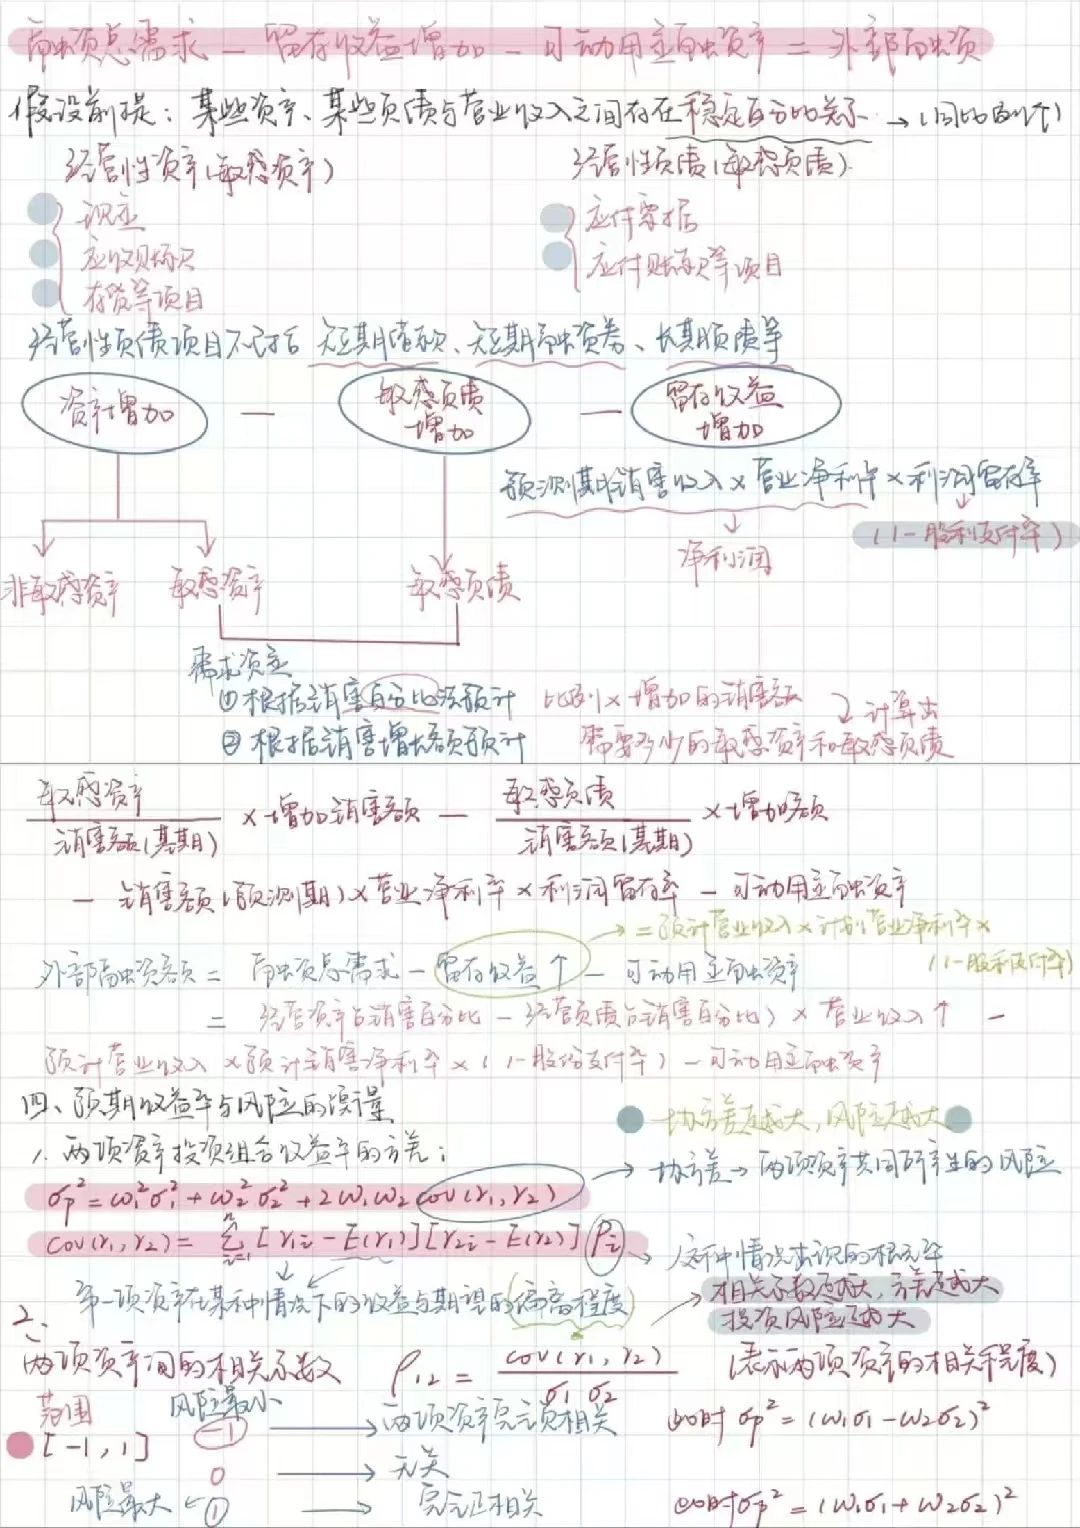 融资总需求 - 留存收益增加 - 可动用金融资产 = 外部融资
假设前提：某些资产、某些负债与营业收入之间存在稳定百分比关系 → (同比例个)
经营性资产(敏感资产) 经营性负债(敏感负债)
现金 应付票据
应收账款 应付账款等项目
存货等项目
经营性负债项目不包括 短期借款、短期融资券、长期负债等
资产增加 — 敏感负债增加 — 留存收益增加
预测期销售收入×营业净利率×利润留存率
净利润 (1-股利支付率)
非敏感资产 敏感资产 敏感负债
需求资金
①根据销售百分比法预计 比例×增加的销售额 计算出
②根据销售增长额预计 需要多少的敏感资产和敏感负债
敏感资产/销售额(基期) ×增加销售额 — 敏感负债/销售额(基期) ×增加额
- 销售额(预测期)×营业净利率×利润留存率 - 可动用金融资产
→ =预计营业收入×计划营业净利率×
(1-股利支付率)
外部融资额 = 融资总需求 - 留存收益↑ - 可动用金融资产
= 经营资产占销售百分比 - 经营负债占销售百分比) × 营业收入↑ -
预计营业收入×预计销售净利率×(1-股份支付率) - 可动用金融资产
四、预期收益率与风险的衡量
协方差越大,风险越大
1. 两项资产投资组合收益率的方差：
→ 协方差→两项资产共同所产生的风险
σp²=ω₁²σ₁²+ω₂²σ₂²+2ω₁ω₂cov(r₁,r₂)
cov(r₁,r₂)= Σⁿᵢ₌₁[r₁ᵢ-E(r₁)][r₂ᵢ-E(r₂)]Pᵢ → 这种情况出现的概率
第一项资产在某种情况下的收益与期望的偏离程度
相关系数越大,方差越大
投资风险越大
2、
两项资产间的相关系数 ρ₁₂ = cov(r₁,r₂)/σ₁σ₂ (表示两项资产的相关程度)
范围 风险最小
[-1,1] -1 → 两项资产完全负相关 此时σp²=(ω₁σ₁-ω₂σ₂)²
0 → 无关
风险最大 ← 1 → 完全正相关 此时σp²=(ω₁σ₁+ω₂σ₂)²